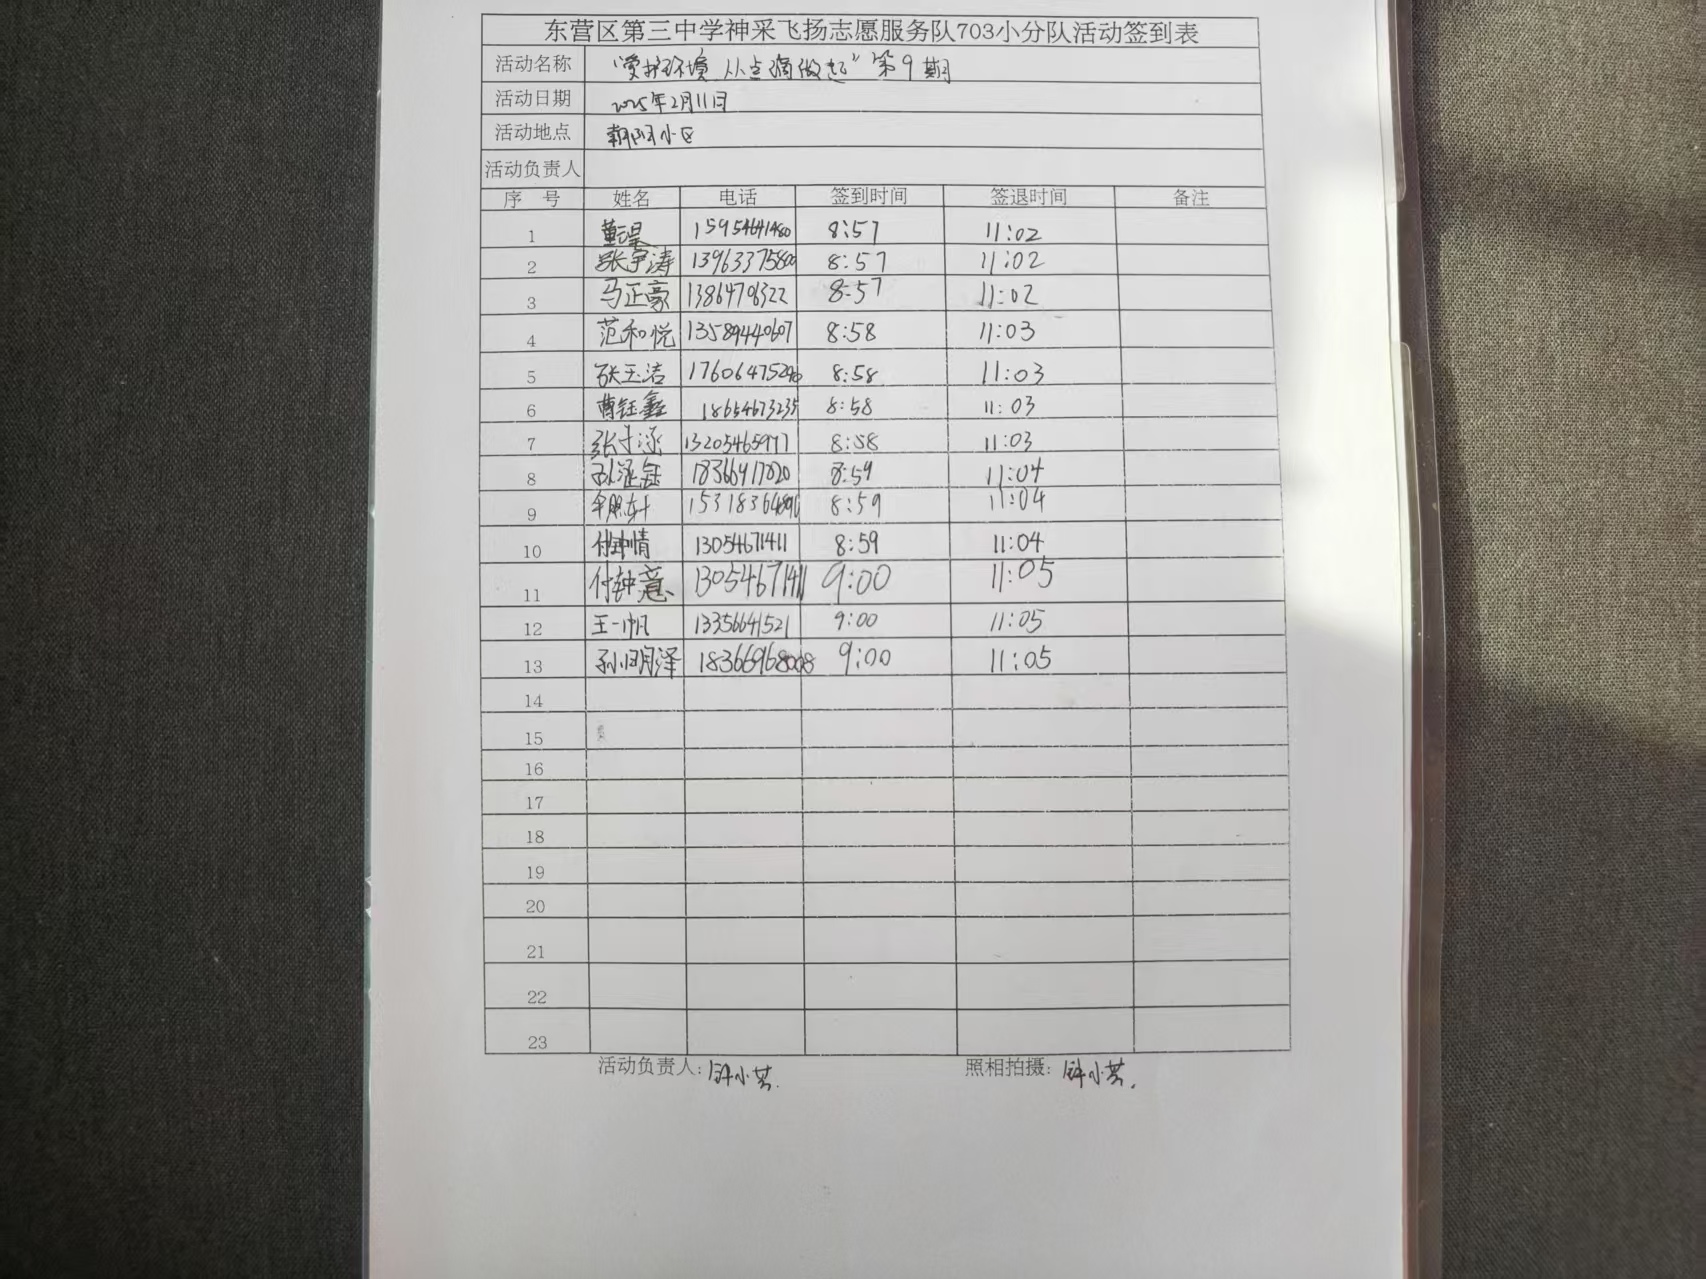 东营区第三中学神采飞扬志愿服务队703小分队活动签到表
活动名称 “爱护环境 从点滴做起”第9期
活动日期 2025年2月11日
活动地点 朝阳小区
活动负责人
序 号 姓名 电话 签到时间 签退时间 备注
1 董昊 15954641480 8:57 11:02
2 张争涛 13963375800 8:57 11:02
3 马正豪 1386476322 8:57 11:02
4 范和悦 13589440607 8:58 11:03
5 张玉洁 17606475290 8:58 11:03
6 曹钰鑫 18654673235 8:58 11:03
7 张于涵 13205465977 8:58 11:03
8 孙涵钰 18366917020 8:59 11:04
9 8:59 11:04
10 付钟情 13054671411 8:59 11:04
11 付钟意 13054671411 9:00 11:05
12 王一帆 13356641521 9:00 11:05
13 孙明泽 18366968008 9:00 11:05
14
15
16
17
18
19
20
21
22
23
活动负责人: 钟小芳. 照相拍摄: 钟小芳.